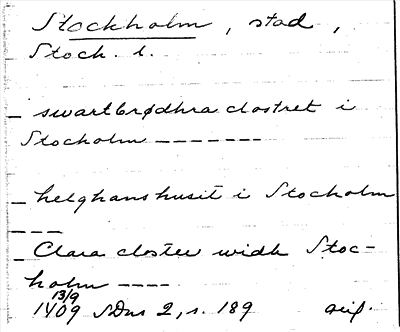 Stockholm, stad,
Stoch. l.
_ swartbrødhra clostret i
Stocholm - - - - - - -
_ helghanshusit i Stocholm
- - -
_ Clara closter widh Stoc-
holm - - - -
13/9
1409 SDns 2, s. 189